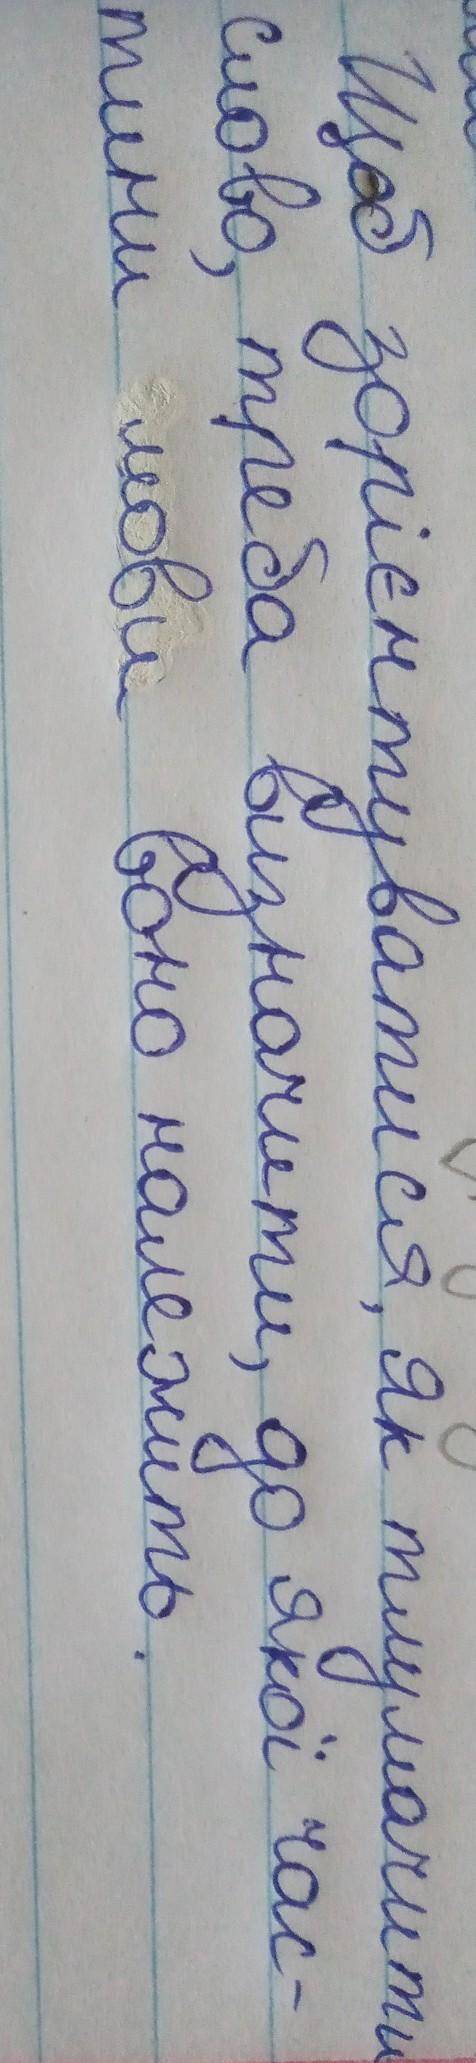 Щоб зорієнтуватися, як тлумачити
слово, треба визначити, до якої час-
тини мови воно належить.